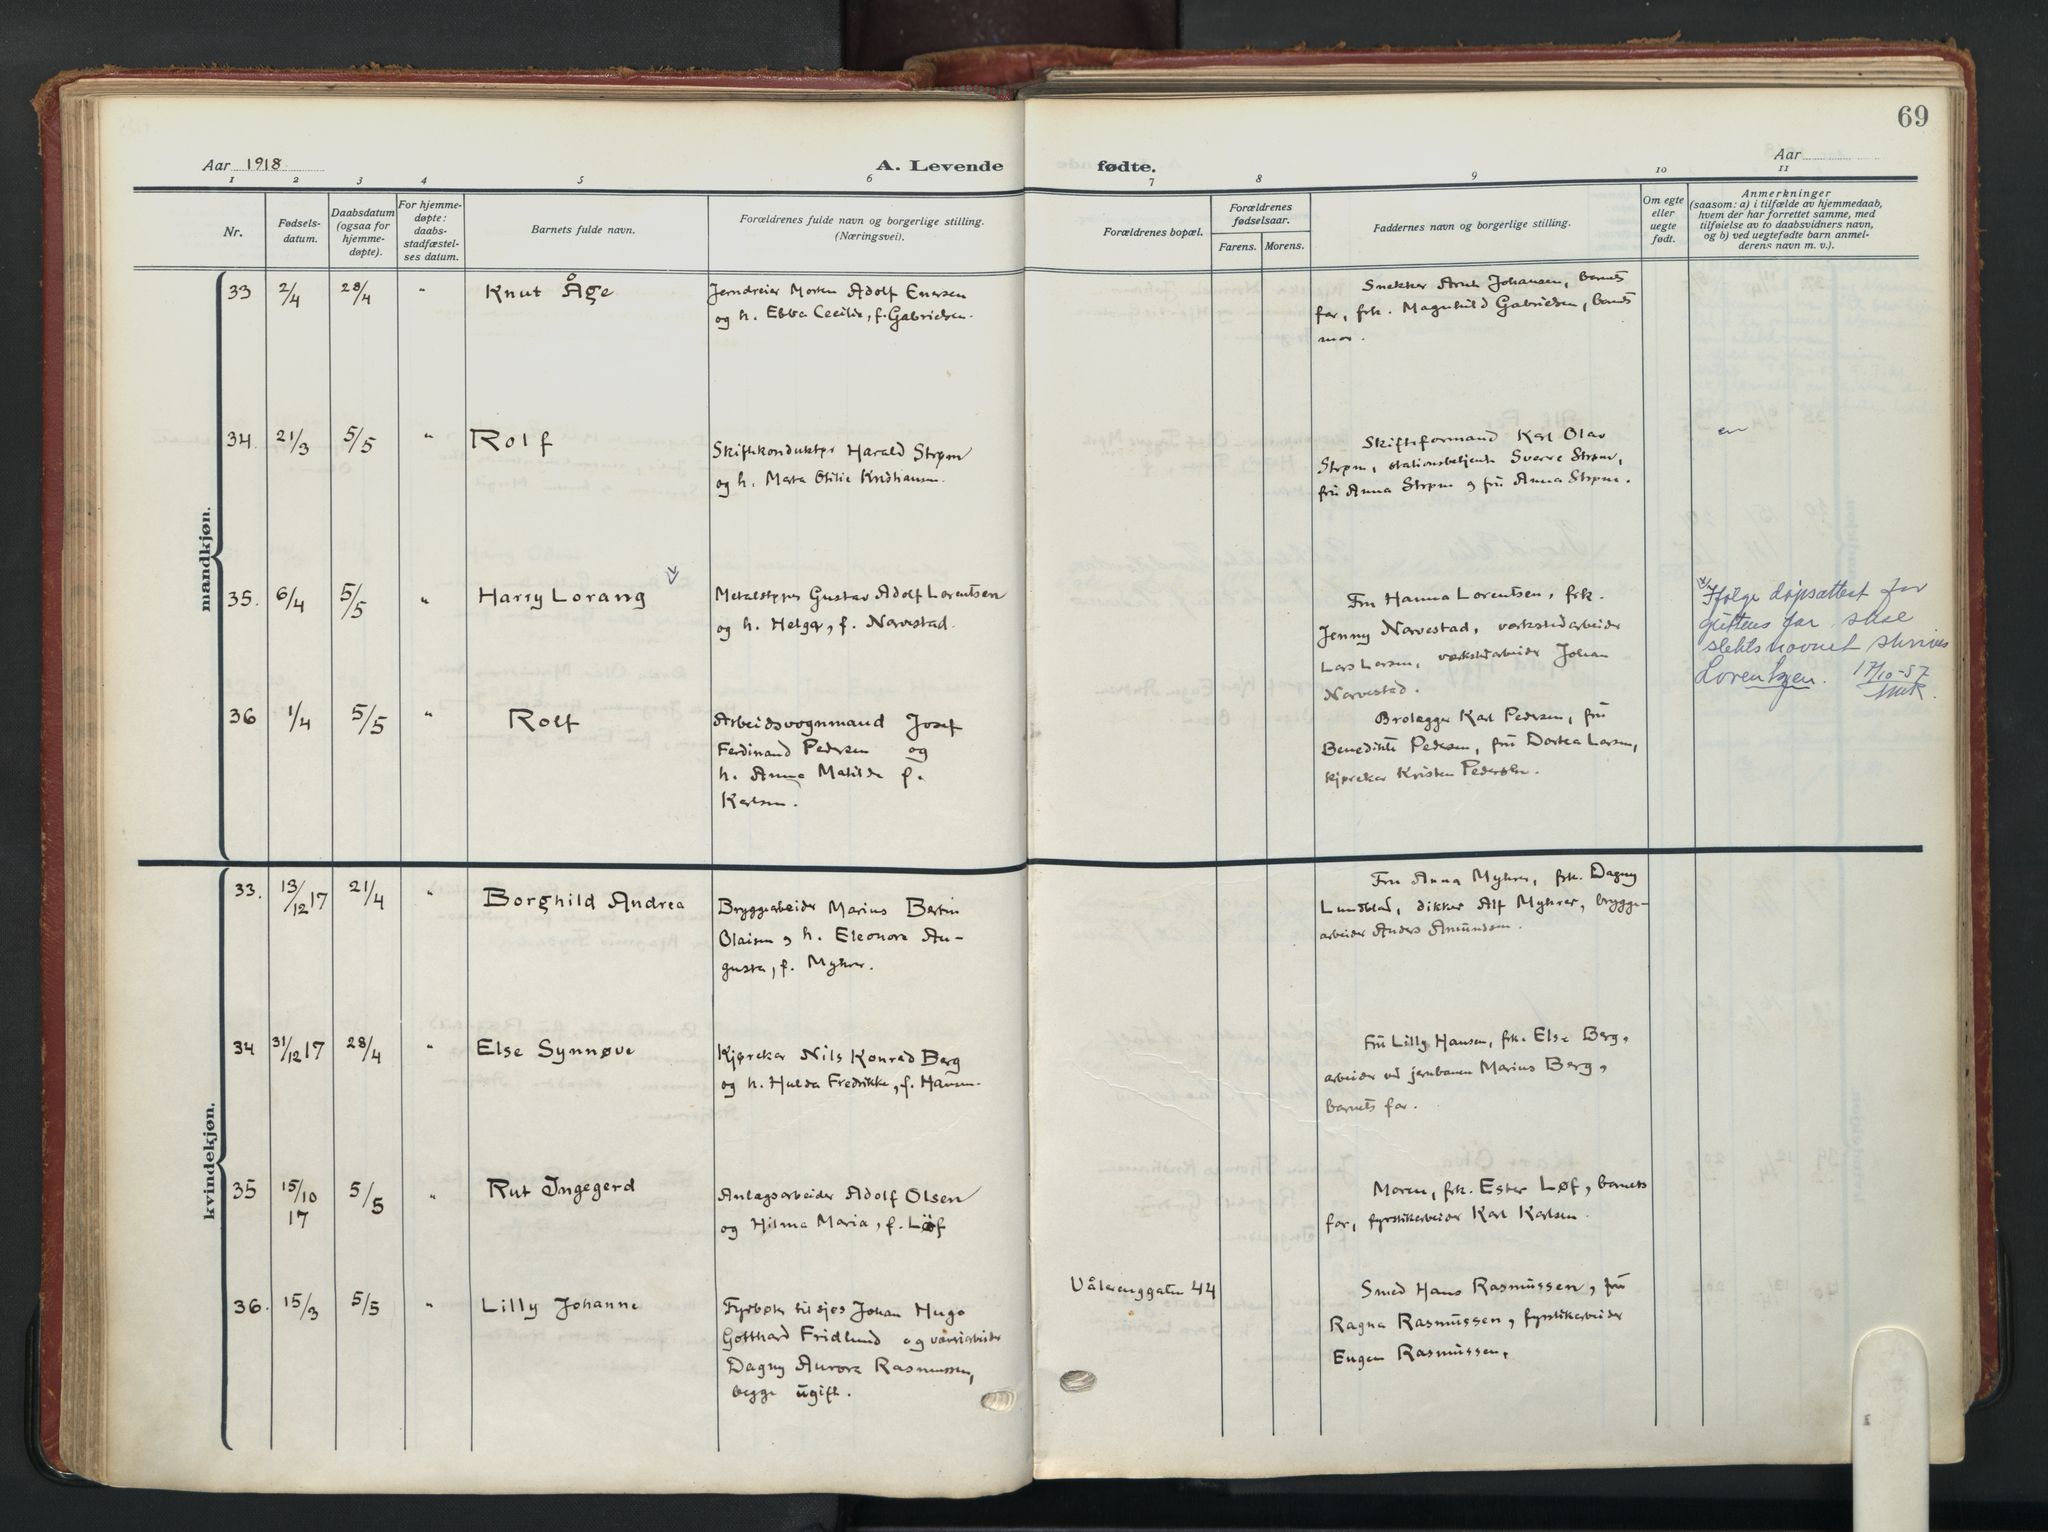 69
Aar 1918
A. Levende fødte.
Aar
1 2 3 4 5 6 7 8 9 10 11
Nr.
Fødsels-
datum.
Daabsdatum
(ogsaa for
hjemme-
døpte).
For hjemme-
døpte:
daabs-
stadfæstel-
ses datum.
Barnets fulde navn.
Forældrenes fulde navn og borgerlige stilling.
(Næringsvei).
Forældrenes bopæl.
Forældrenes
fødselsaar.
Farens. Morens.
Faddernes navn og borgerlige stilling.
Om egte
eller
uegte
født.
Anmerkninger
(saasom: a) i tilfælde av hjemmedaab,
hvem der har forrettet samme, med
tilføielse av to daabsvidners navn,
og b) ved uegtefødte barn anmel-
derens navn m. v.).
mandkjøn.
33 2/4 28/4 " Knut Åge
Jerndreier Morten Adolf Enersen
og h. Ebba Cecilie, f. Gabrielsen.
Snekker Arnt Johansen, barnets
far, frk. Magnhild Gabrielsen, barnets
mor.
34. 21/3 5/5 " Rolf
Skiftekonduktør Harald Strøm
og h. Marta Otilie Kristiansen.
Skifteformand Karl Olav
Strøm, stationsbetjent Sverre Strøm,
frü Anna Strøm og frü Anna Strøm.
35. 6/4 5/5 " Harry Lorang
Metalstøper Gustav Adolf Lorentsen
og h. Helga, f. Narvestad.
Fru Hanna Lorentsen, frk.
Jenny Narvestad, verkstedarbeider
Lars Larsen, verkstedarbeider Johan
Narvestad.
Ifølge dåpsattest for
guttens far skal
slektsnavnet skrives
Lorentzen. 17/10-57
36 1/4 5/5 " Rolf
Arbeidsvognmand Josef
Ferdinand Pedersen og
h. Anna Matilde f.
Karlsen.
Brolægger Karl Pedersen, frü
Benedikte Pedersen, frü Dortea Larsen,
kjørekar Kristen Pedersen.
kvindekjøn.
33. 13/12 17 21/4 " Borghild Andrea
Bryggearbeider Marius Bertin
Olaisen og h. Eleonora Au-
gusta, f. Myhrer.
Fru Anna Myhrer, frk. Dagny
Lundblad, dikker Alf Myhrer, brygge-
arbeider Anders Amundsen.
34 31/12 17 28/4 " Else Synnøve
Kjørekar Nils Konrad Berg
og h. Hulda Fredrikke, f. Hansen.
Frü Lilly Hansen, frk. Else Berg,
arbeider ved jernbanen Marius Berg,
barnets far.
35 15/10 17 5/5 " Rut Ingegerd
Anlægsarbeider Adolf Olsen
og Hilma Maria, f. Löf
Moren, frk. Ester Løf, barnets
far, fyrstikarbeider Karl Karlsen.
36. 15/3 5/5 " Lilly Johanne
Fyrbøter tilsjøs Johan Hugo
Gotthard Fridlund og
Dagny Aurora Rasmussen,
begge ugift.
Vålerenggaten 44
Smed Hans Rasmussen, frü
Ragna Rasmussen, fyrstikarbeider
Eugen Rasmussen.